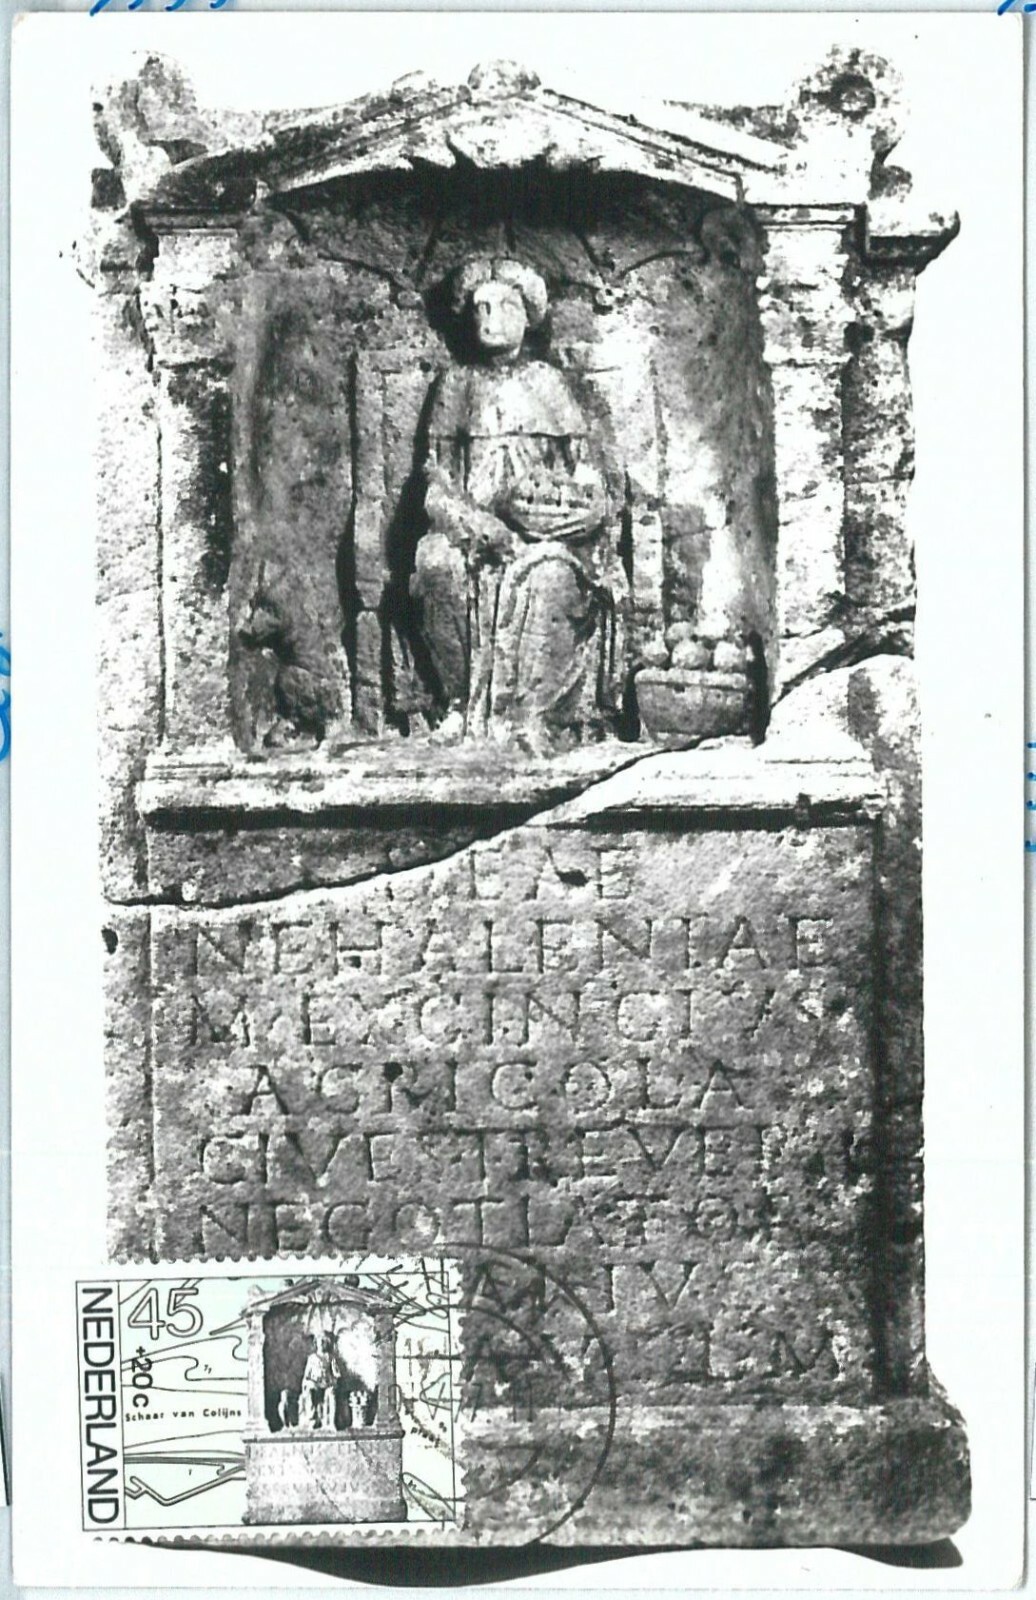 EAE
NEHALENIAE
M EXCINCIVS
AGRICOLA
CIVES TREVER
NEGOTIATOR
NEDERLAND
45
+20c
Schaar van Colijns
plaat